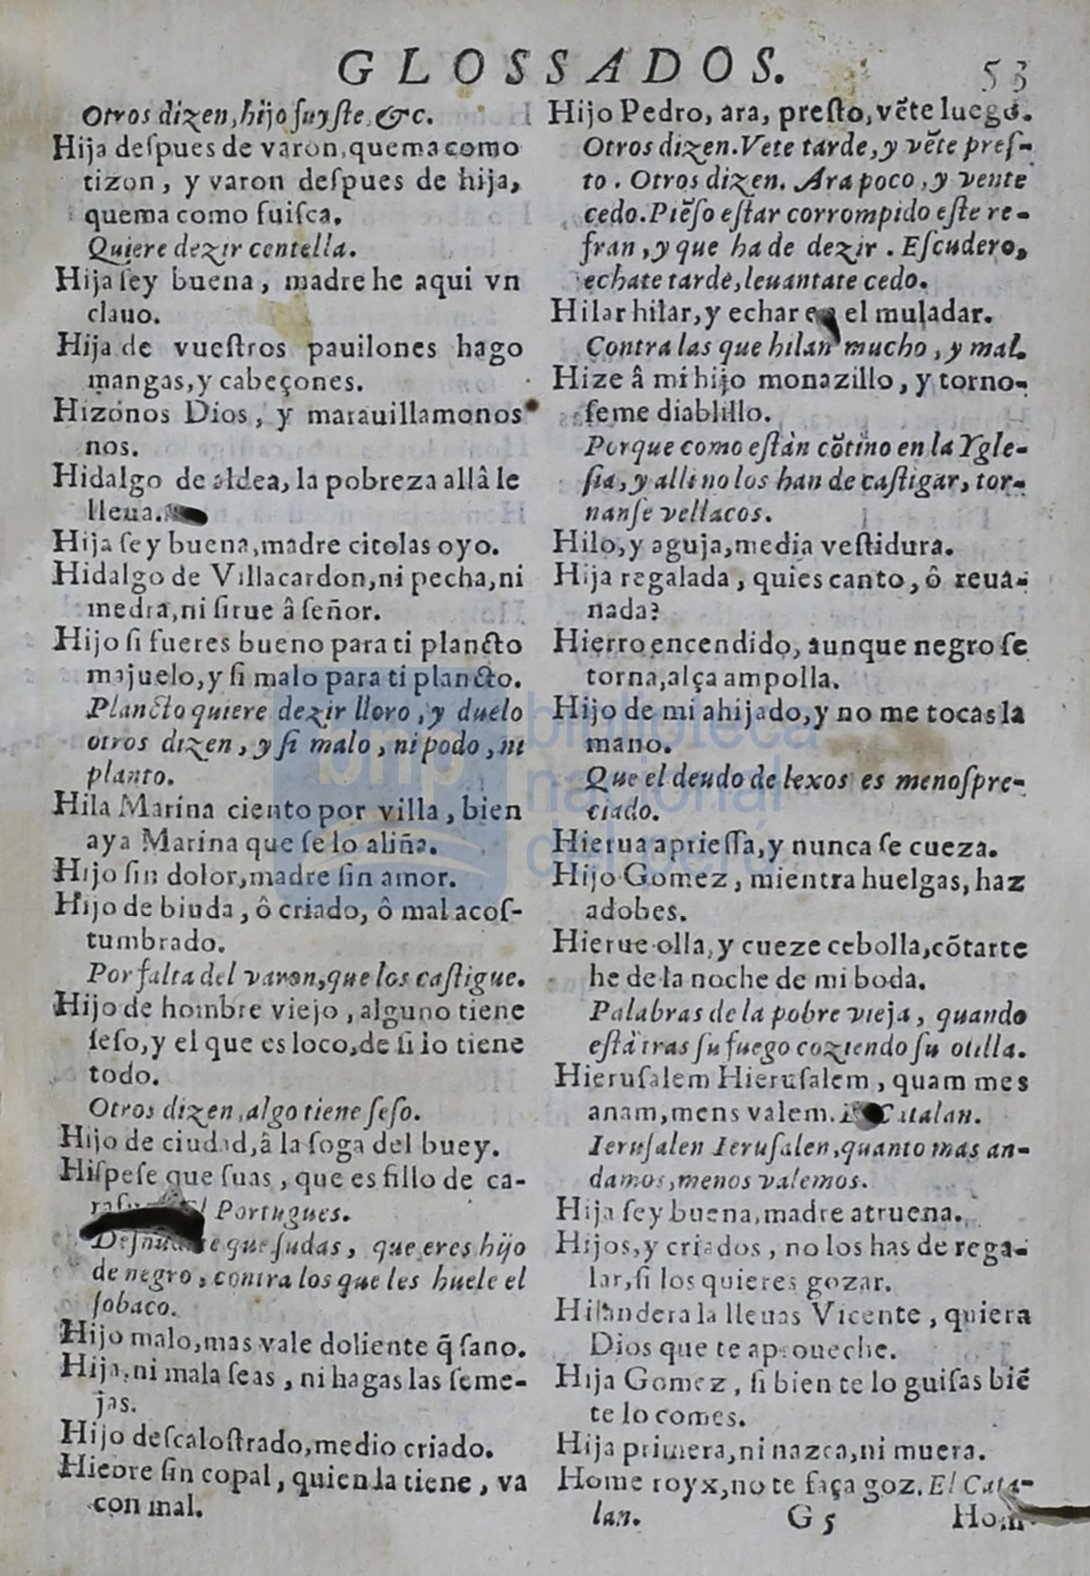 GLOSSADOS. 53
Otros dizen, hijo fuyſte, &c.
Hija deſpues de varon, quema como
tizon, y varon deſpues de hija,
quema como fuiſca.
Quiere dezir centella.
Hija ſey buena, madre he aqui vn
clauo.
Hija de vueſtros pauilones hago
mangas, y cabeçones.
Hizónos Dios, y marauillamonos
nos.
Hidalgo de aldea, la pobreza allâ le
lleua.
Hija ſey buena, madre citolas oyo.
Hidalgo de Villacardon, ni pecha, ni
medra, ni ſirue â ſeñor.
Hijo ſi fueres bueno para ti plancto
majuelo, y ſi malo para ti plancto.
Plancto quiere dezir lloro, y duelo
otros dizen, y ſi malo, ni podo, ni
planto.
Hila Marina ciento por villa, bien
aya Marina que ſe lo aliña.
Hijo ſin dolor, madre ſin amor.
Hijo de biuda, ô criado, ô mal acoſ-
tumbrado.
Por falta del varon, que los caſtigue.
Hijo de hombre viejo, alguno tiene
ſeſo, y el que es loco, de ſi lo tiene
todo.
Otros dizen, algo tiene ſeſo.
Hijo de ciudad, â la ſoga del buey.
Hiſpeſe que ſuas, que es fillo de ca-
El Portugues.
que ſudas, que eres hijo
de negro, contra los que les huele el
ſobaco.
Hijo malo, mas vale doliente q̃ ſano.
Hija, ni mala ſeas, ni hagas las ſeme-
jas.
Hijo deſcaloſtrado, medio criado.
Hiebre ſin copal, quien la tiene, va
con mal.
Hijo Pedro, ara, preſto, vẽte luego.
Otros dizen. Vete tarde, y vẽte preſ-
to. Otros dizen. Ara poco, y vente
cedo. Piẽſo eſtar corrompido eſte re-
fran, y que ha de dezir. Eſcudero,
echate tarde, leuantate cedo.
Hilar hilar, y echar en el muladar.
Contra las que hilan mucho, y mal.
Hize â mi hijo monazillo, y torno-
ſeme diablillo.
Porque como eſtàn cõtino en la Ygle-
ſia, y alli no los han de caſtigar, tor-
nanſe vellacos.
Hilo, y aguja, media veſtidura.
Hija regalada, quies canto, ô reua-
nada?
Hierro encendido, aunque negro ſe
torna, alça ampolla.
Hijo de mi ahijado, y no me tocas la
mano.
Que el deudo de lexos es menoſpre-
ciado.
Hierua aprieſſa, y nunca ſe cueza.
Hijo Gomez, mientra huelgas, haz
adobes.
Hierue olla, y cueze cebolla, cõtarte
he de la noche de mi boda.
Palabras de la pobre vieja, quando
eſtà tras ſu fuego coziendo ſu olilla.
Hieruſalem Hieruſalem, quam mes
anam, mens valem. El Catalan.
Ieruſalen Ieruſalen, quanto mas an-
damos, menos valemos.
Hija ſey buena, madre atruena.
Hijos, y criados, no los has de rega-
lar, ſi los quieres gozar.
Hilandera la lleuas Vicente, quiera
Dios que te aproueche.
Hija Gomez, ſi bien te lo guiſas biẽ
te lo comes.
Hija primera, ni nazca, ni muera.
Home royx, no te faça goz. El Cata-
lan. G 5 Hom-
bnp biblioteca
nacional
del perú